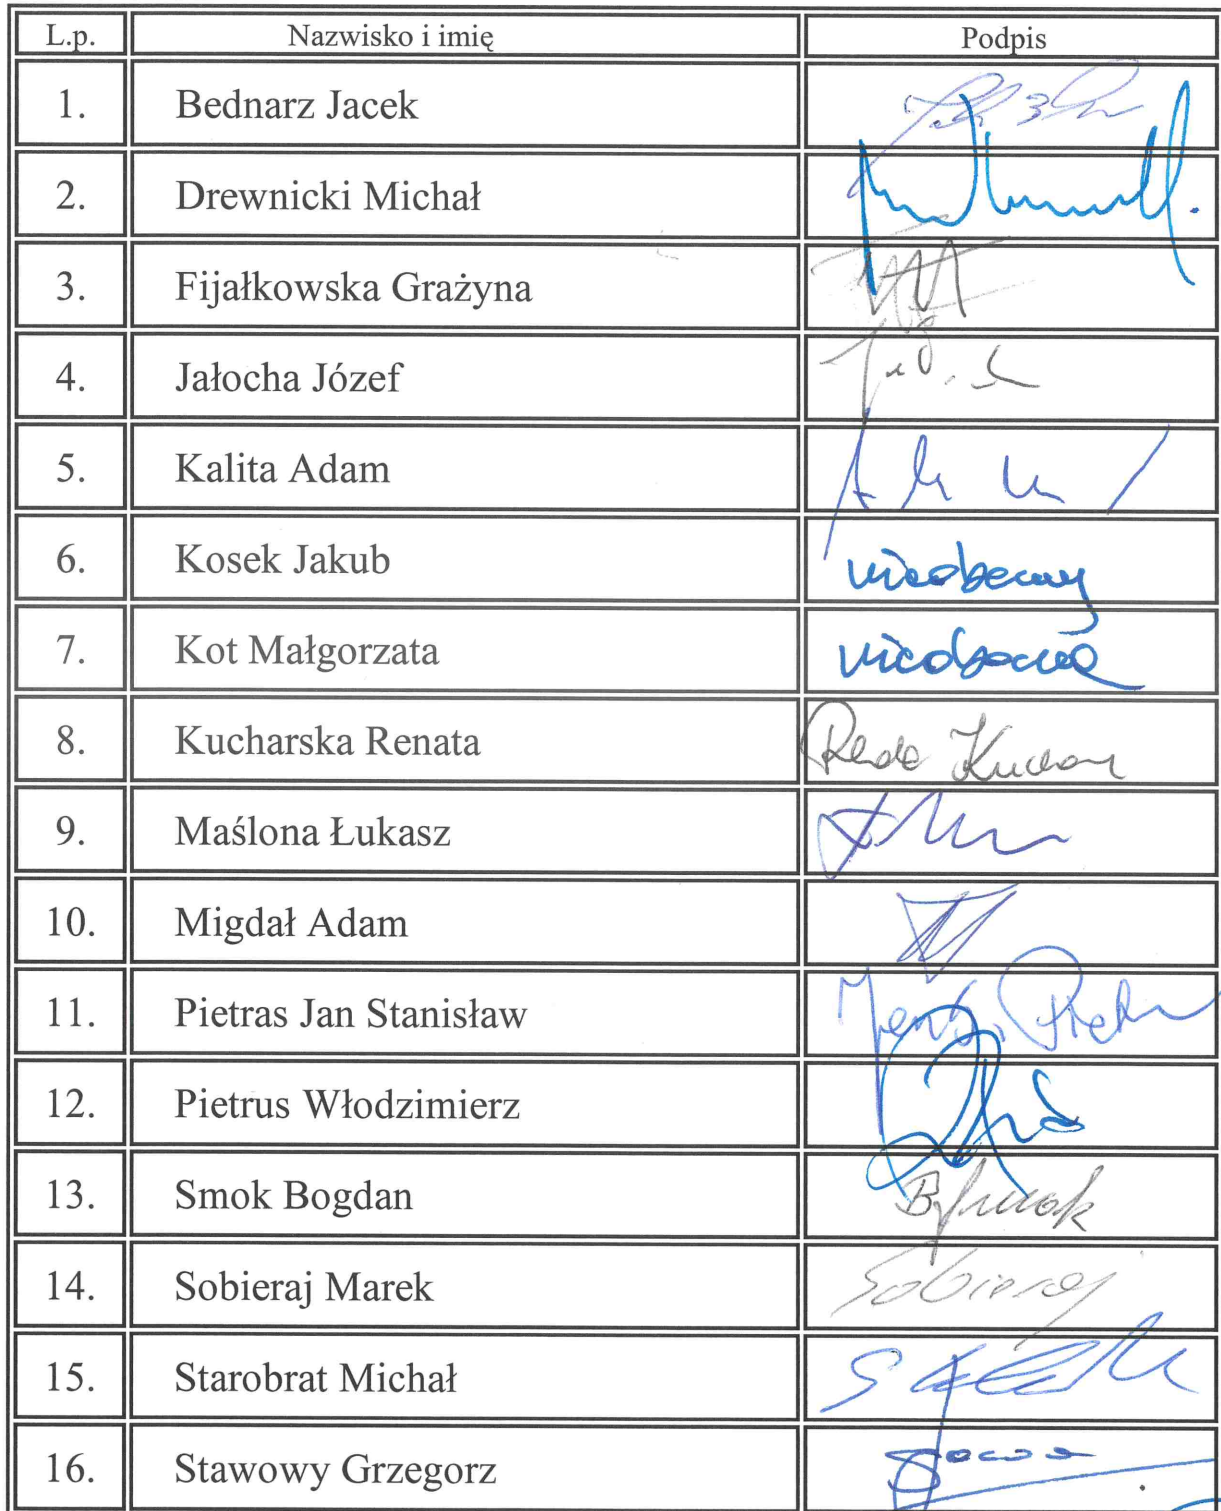 L.p. Nazwisko i imię Podpis
1. Bednarz Jacek
2. Drewnicki Michał
3. Fijałkowska Grażyna
4. Jałocha Józef
5. Kalita Adam
6. Kosek Jakub nieobecny
7. Kot Małgorzata nieobecna
8. Kucharska Renata
9. Maślona Łukasz
10. Migdał Adam
11. Pietras Jan Stanisław
12. Pietrus Włodzimierz
13. Smok Bogdan B. Smok
14. Sobieraj Marek Sobieraj
15. Starobrat Michał
16. Stawowy Grzegorz